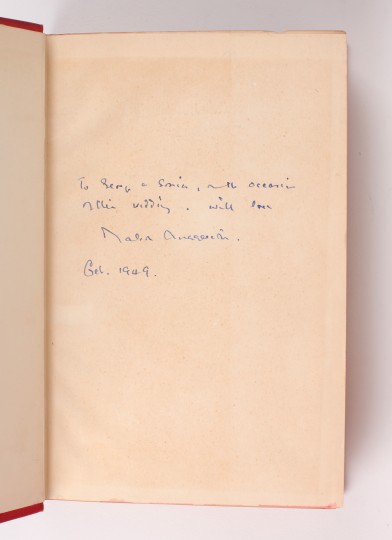 To George & Sonia, on the occasion
of their wedding. with love
Malcolm Muggeridge.
Oct. 1949.